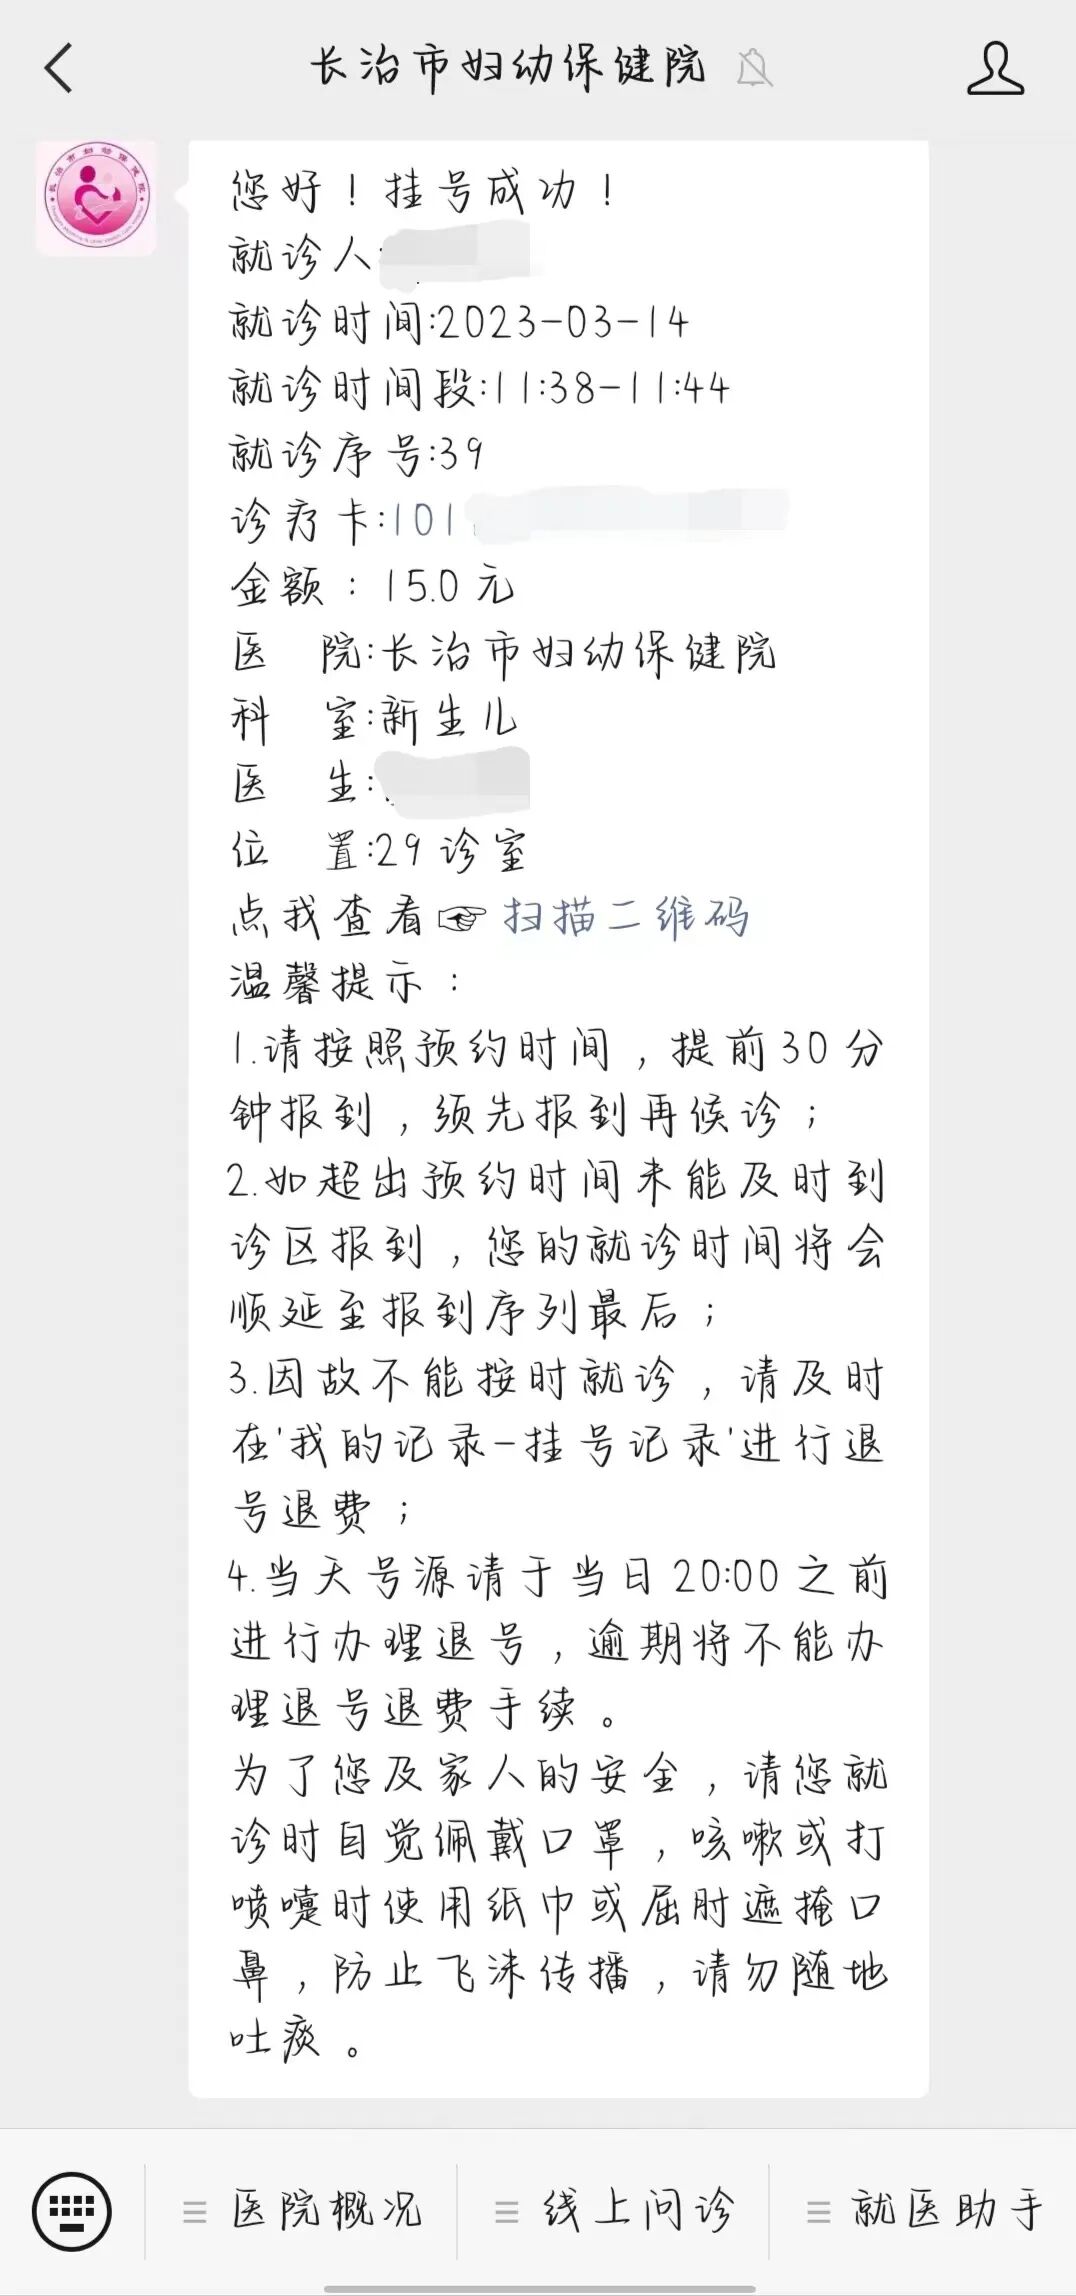 长治市妇幼保健院
您好！挂号成功！
就诊人:
就诊时间:2023-03-14
就诊时间段:11:38-11:44
就诊序号:39
诊疗卡:101
金额：15.0元
医 院:长治市妇幼保健院
科 室:新生儿
医 生:
位 置:29诊室
点我查看☞扫描二维码
温馨提示：
1.请按照预约时间，提前30分
钟报到，须先报到再候诊；
2.如超出预约时间未能及时到
诊区报到，您的就诊时间将会
顺延至报到序列最后；
3.因故不能按时就诊，请及时
在'我的记录-挂号记录'进行退
号退费；
4.当天号源请于当日20:00之前
进行办理退号，逾期将不能办
理退号退费手续。
为了您及家人的安全，请您就
诊时自觉佩戴口罩，咳嗽或打
喷嚏时使用纸巾或屈肘遮掩口
鼻，防止飞沫传播，请勿随地
吐痰。
医院概况
线上问诊
就医助手